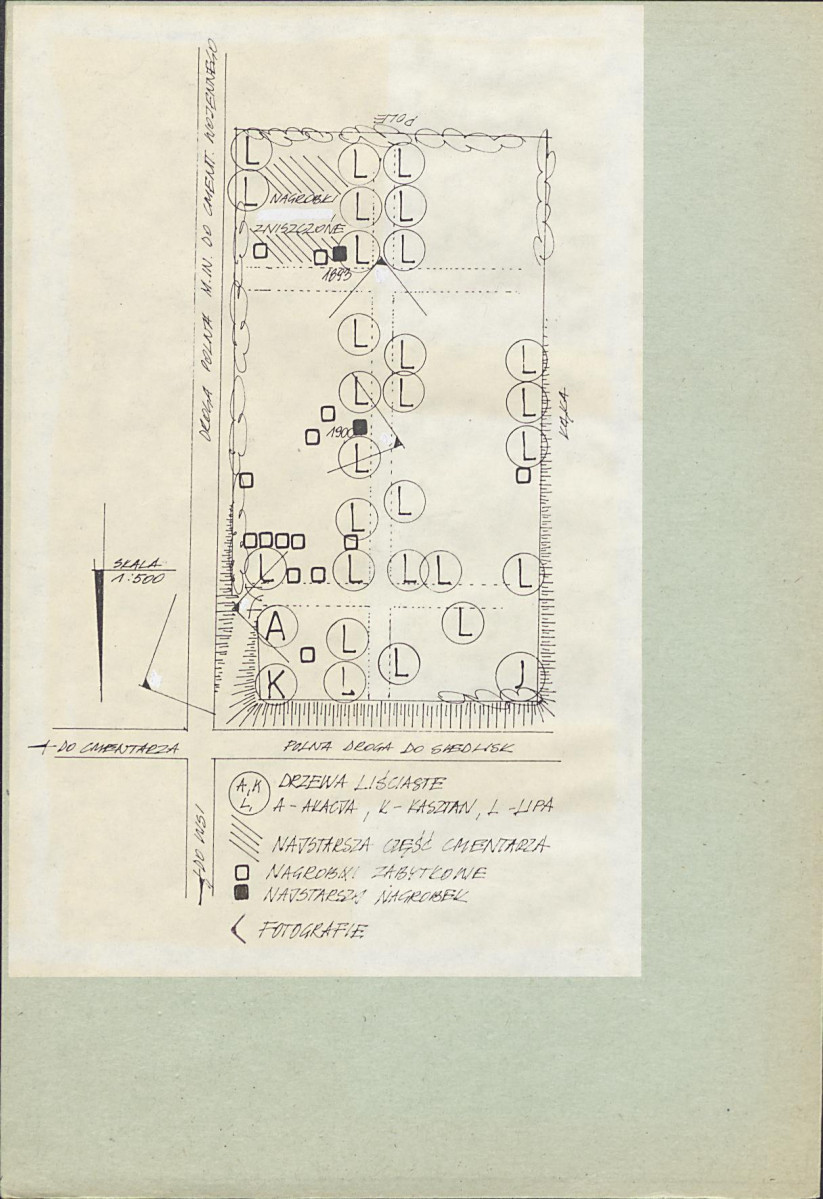 POLE
DROGA POLNA M.IN. DO CMENT. WOJENNEGO
L L L
L L L
NAGROBKI
ZNISZCZONE
L L
1893
L
L L
L L L
L
1900
L L
L L
ŁĄKA
SKALA
1:500
L L L L L
A L L
L
K L J
DO CMENTARZA
POLNA DROGA DO SIEDLISK
DO WSI
A, K
L,
DRZEWA LIŚCIASTE
A - AKACJA, K - KASZTAN, L - LIPA
NAJSTARSZA CZĘŚĆ CMENTARZA
NAGROBKI ZABYTKOWE
NAJSTARSZY NAGROBEK
FOTOGRAFIE